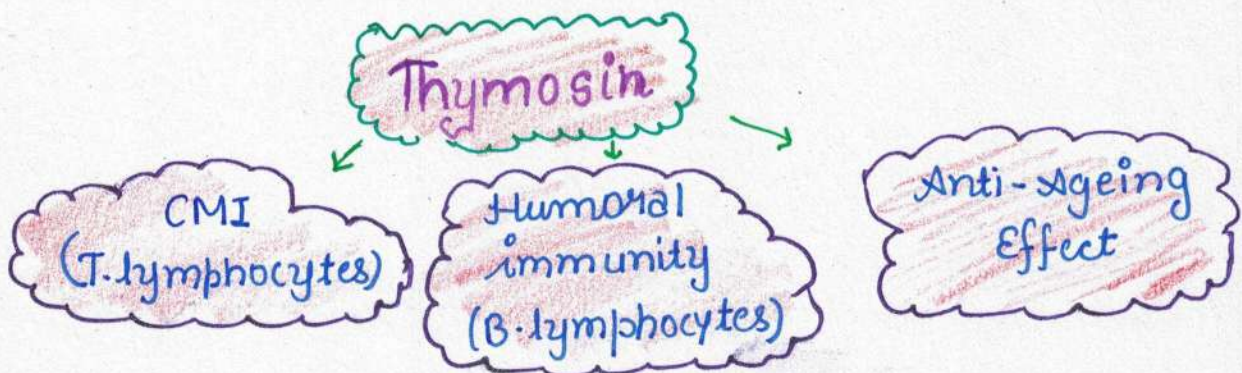 Thymosin
CMI
(T.lymphocytes)
Humoral
immunity
(B.lymphocytes)
Anti-Ageing
Effect